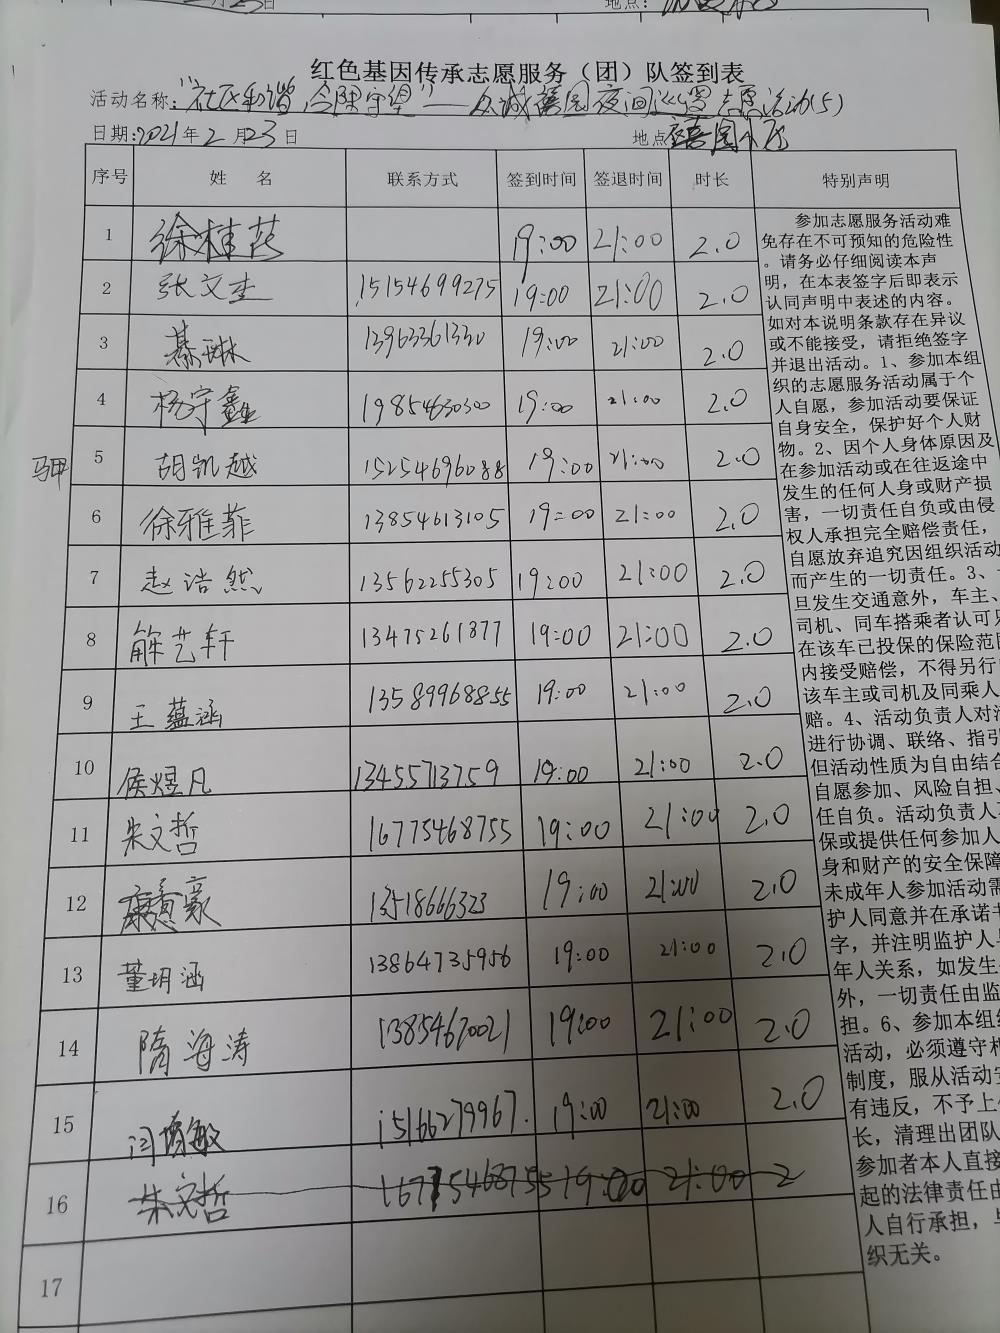 红色基因传承志愿服务（团）队签到表
活动名称：“社区和谐 守望”——众诚 园夜间巡逻志愿活动(5)
日期：2021年2月23日 地点
序号 姓 名 联系方式 签到时间 签退时间 时长 特别声明
1 徐桂花 19:00 21:00 2.0
2 张文杰 15154699275 19:00 21:00 2.0
3 綦琳 13963361330 19:00 21:00 2.0
4 杨宇鑫 19854630300 19:00 21:00 2.0
马甲
5 胡凯越 15254696088 19:00 21:00 2.0
6 徐雅菲 13854613105 19:00 21:00 2.0
7 赵浩然 13562255305 19:00 21:00 2.0
8 解艺轩 13475261877 19:00 21:00 2.0
9 王蕴涵 13589968855 19:00 21:00 2.0
10 侯煜凡 13455713759 19:00 21:00 2.0
11 朱文哲 16775468755 19:00 21:00 2.0
12 康 豪 13518666323 19:00 21:00 2.0
13 董玥涵 13864735956 19:00 21:00 2.0
14 隋海涛 13854670021 19:00 21:00 2.0
15 闫 敏 15166279967 19:00 21:00 2.0
16 朱文哲 16775468755 19:00 21:00 2
17
参加志愿服务活动难
免存在不可预知的危险性
。请务必仔细阅读本声
明，在本表签字后即表示
认同声明中表述的内容。
如对本说明条款存在异议
或不能接受，请拒绝签字
并退出活动。1、参加本组
织的志愿服务活动属于个
人自愿，参加活动要保证
自身安全，保护好个人财
物。2、因个人身体原因及
在参加活动或在往返途中
发生的任何人身或财产损
害，一切责任自负或由侵
权人承担完全赔偿责任，
自愿放弃追究因组织活动
而产生的一切责任。3、
旦发生交通意外，车主、
司机、同车搭乘者认可只
在该车已投保的保险范围
内接受赔偿，不得另行
该车主或司机及同乘人
赔。4、活动负责人对活
进行协调、联络、指引
但活动性质为自由结合
自愿参加、风险自担、
任自负。活动负责人不
保或提供任何参加人
身和财产的安全保障
未成年人参加活动需
护人同意并在承诺书
字，并注明监护人与
年人关系，如发生
外，一切责任由监
担。6、参加本组织
活动，必须遵守相
制度，服从活动安
有违反，不予上
长，清理出团队
参加者本人直接
起的法律责任由
人自行承担，与
织无关。